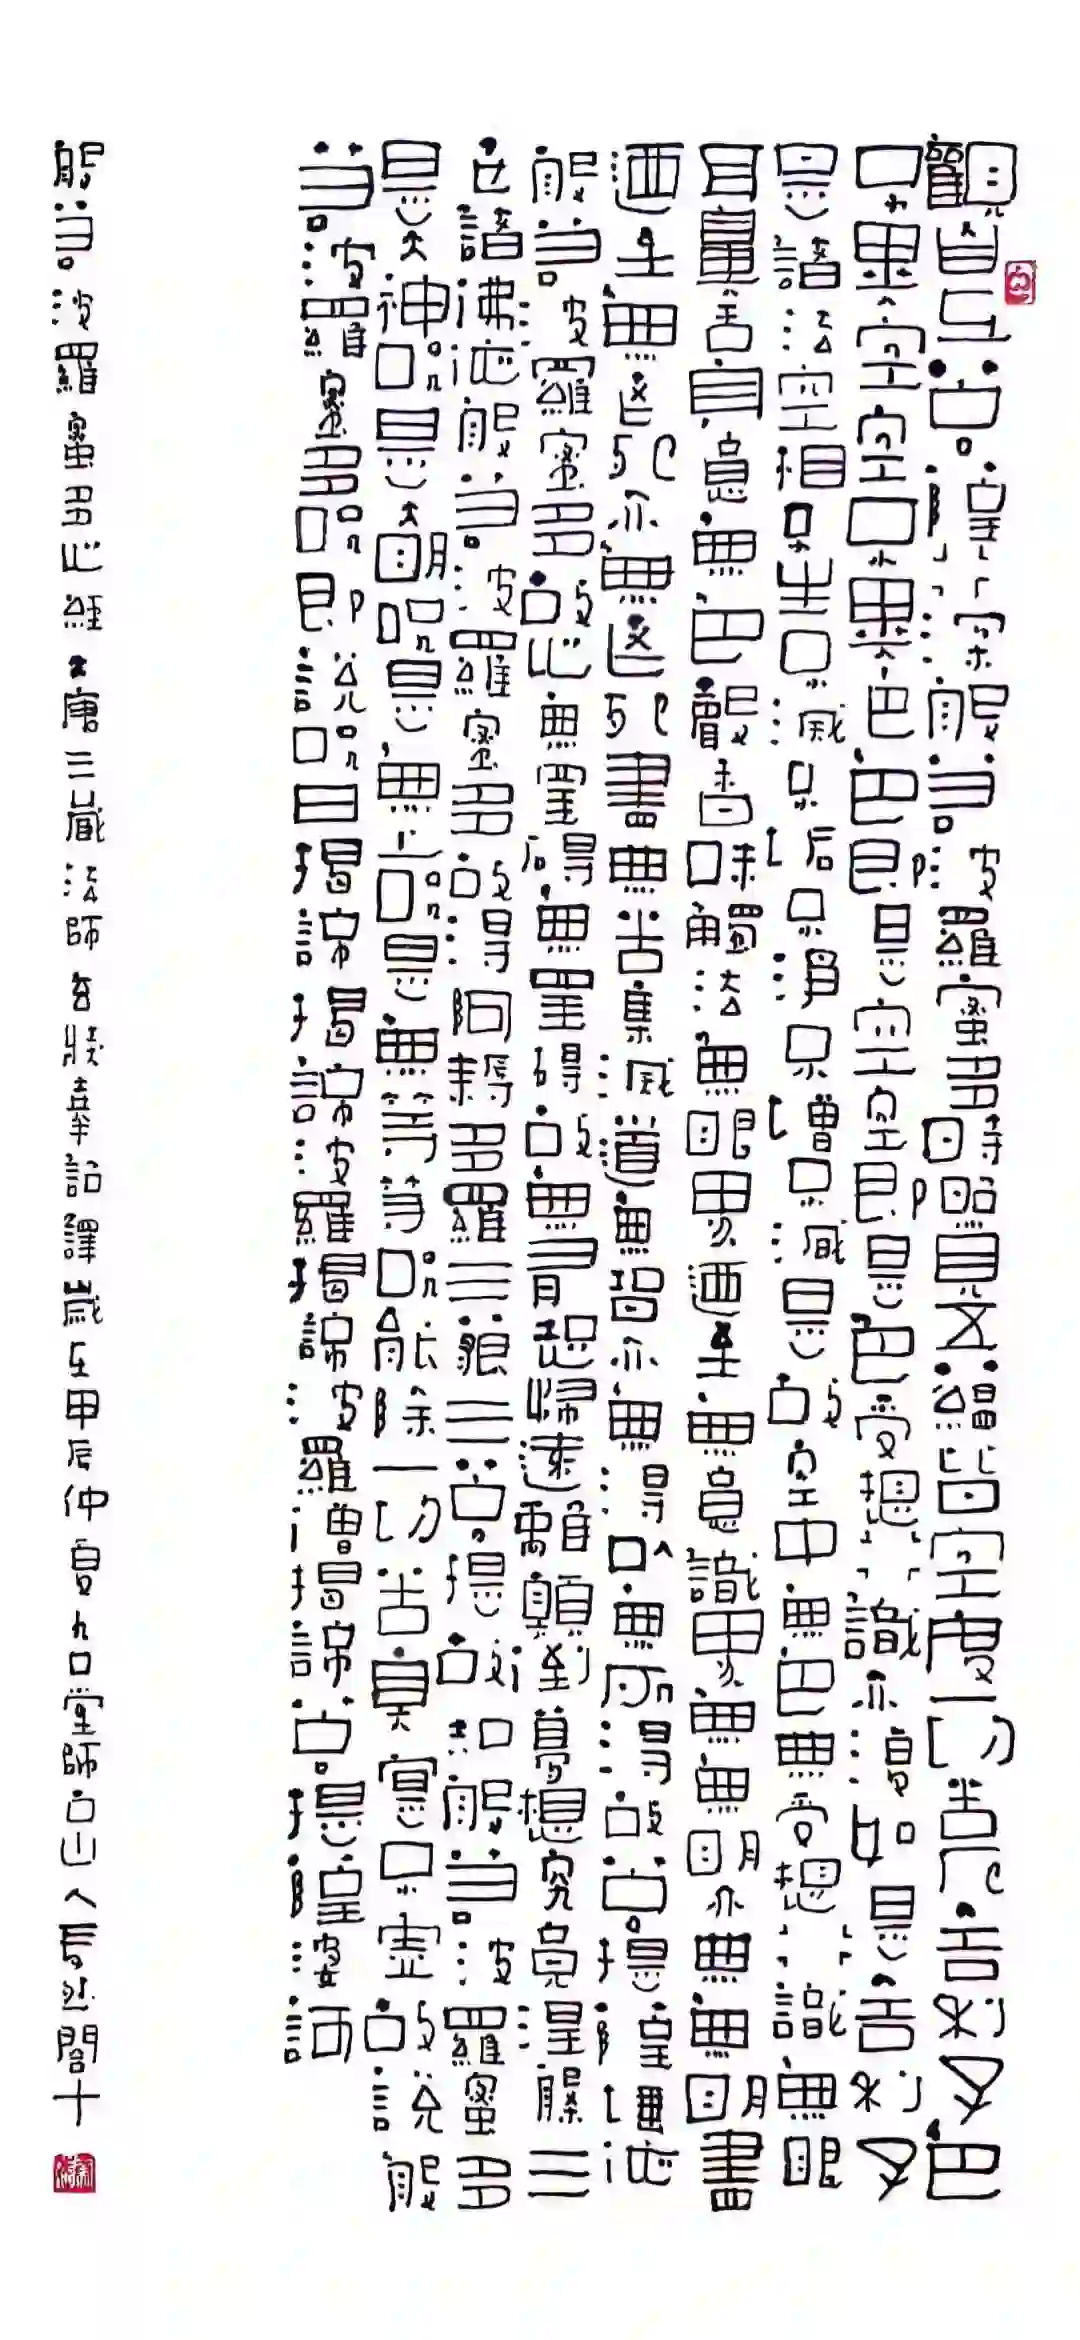 觀自在菩薩行深般若波羅蜜多時照見五蘊皆空度一切苦厄舍利子色
不異空空不異色色即是空空即是色受想行識亦復如是舍利子
是諸法空相不生不滅不垢不淨不增不減是故空中無色無受想行識無眼
耳鼻舌身意無色聲香味觸法無眼界迺至無意識界無無明亦無無明盡
迺至無老死亦無老死盡無苦集滅道無智亦無得以無所得故菩提薩埵依
般若波羅蜜多故心無罣礙無罣礙故無有恐怖遠離顛倒夢想究竟涅槃三
世諸佛依般若波羅蜜多故得阿耨多羅三藐三菩提故知般若波羅蜜多
是大神咒是大明咒是無上咒是無等等咒能除一切苦真實不虛故說般
若波羅蜜多咒即說咒曰揭諦揭諦波羅揭諦波羅僧揭諦菩提薩婆訶
般若波羅蜜多心經大唐三藏法師玄奘奉詔譯歲在甲辰仲夏堂師白山人